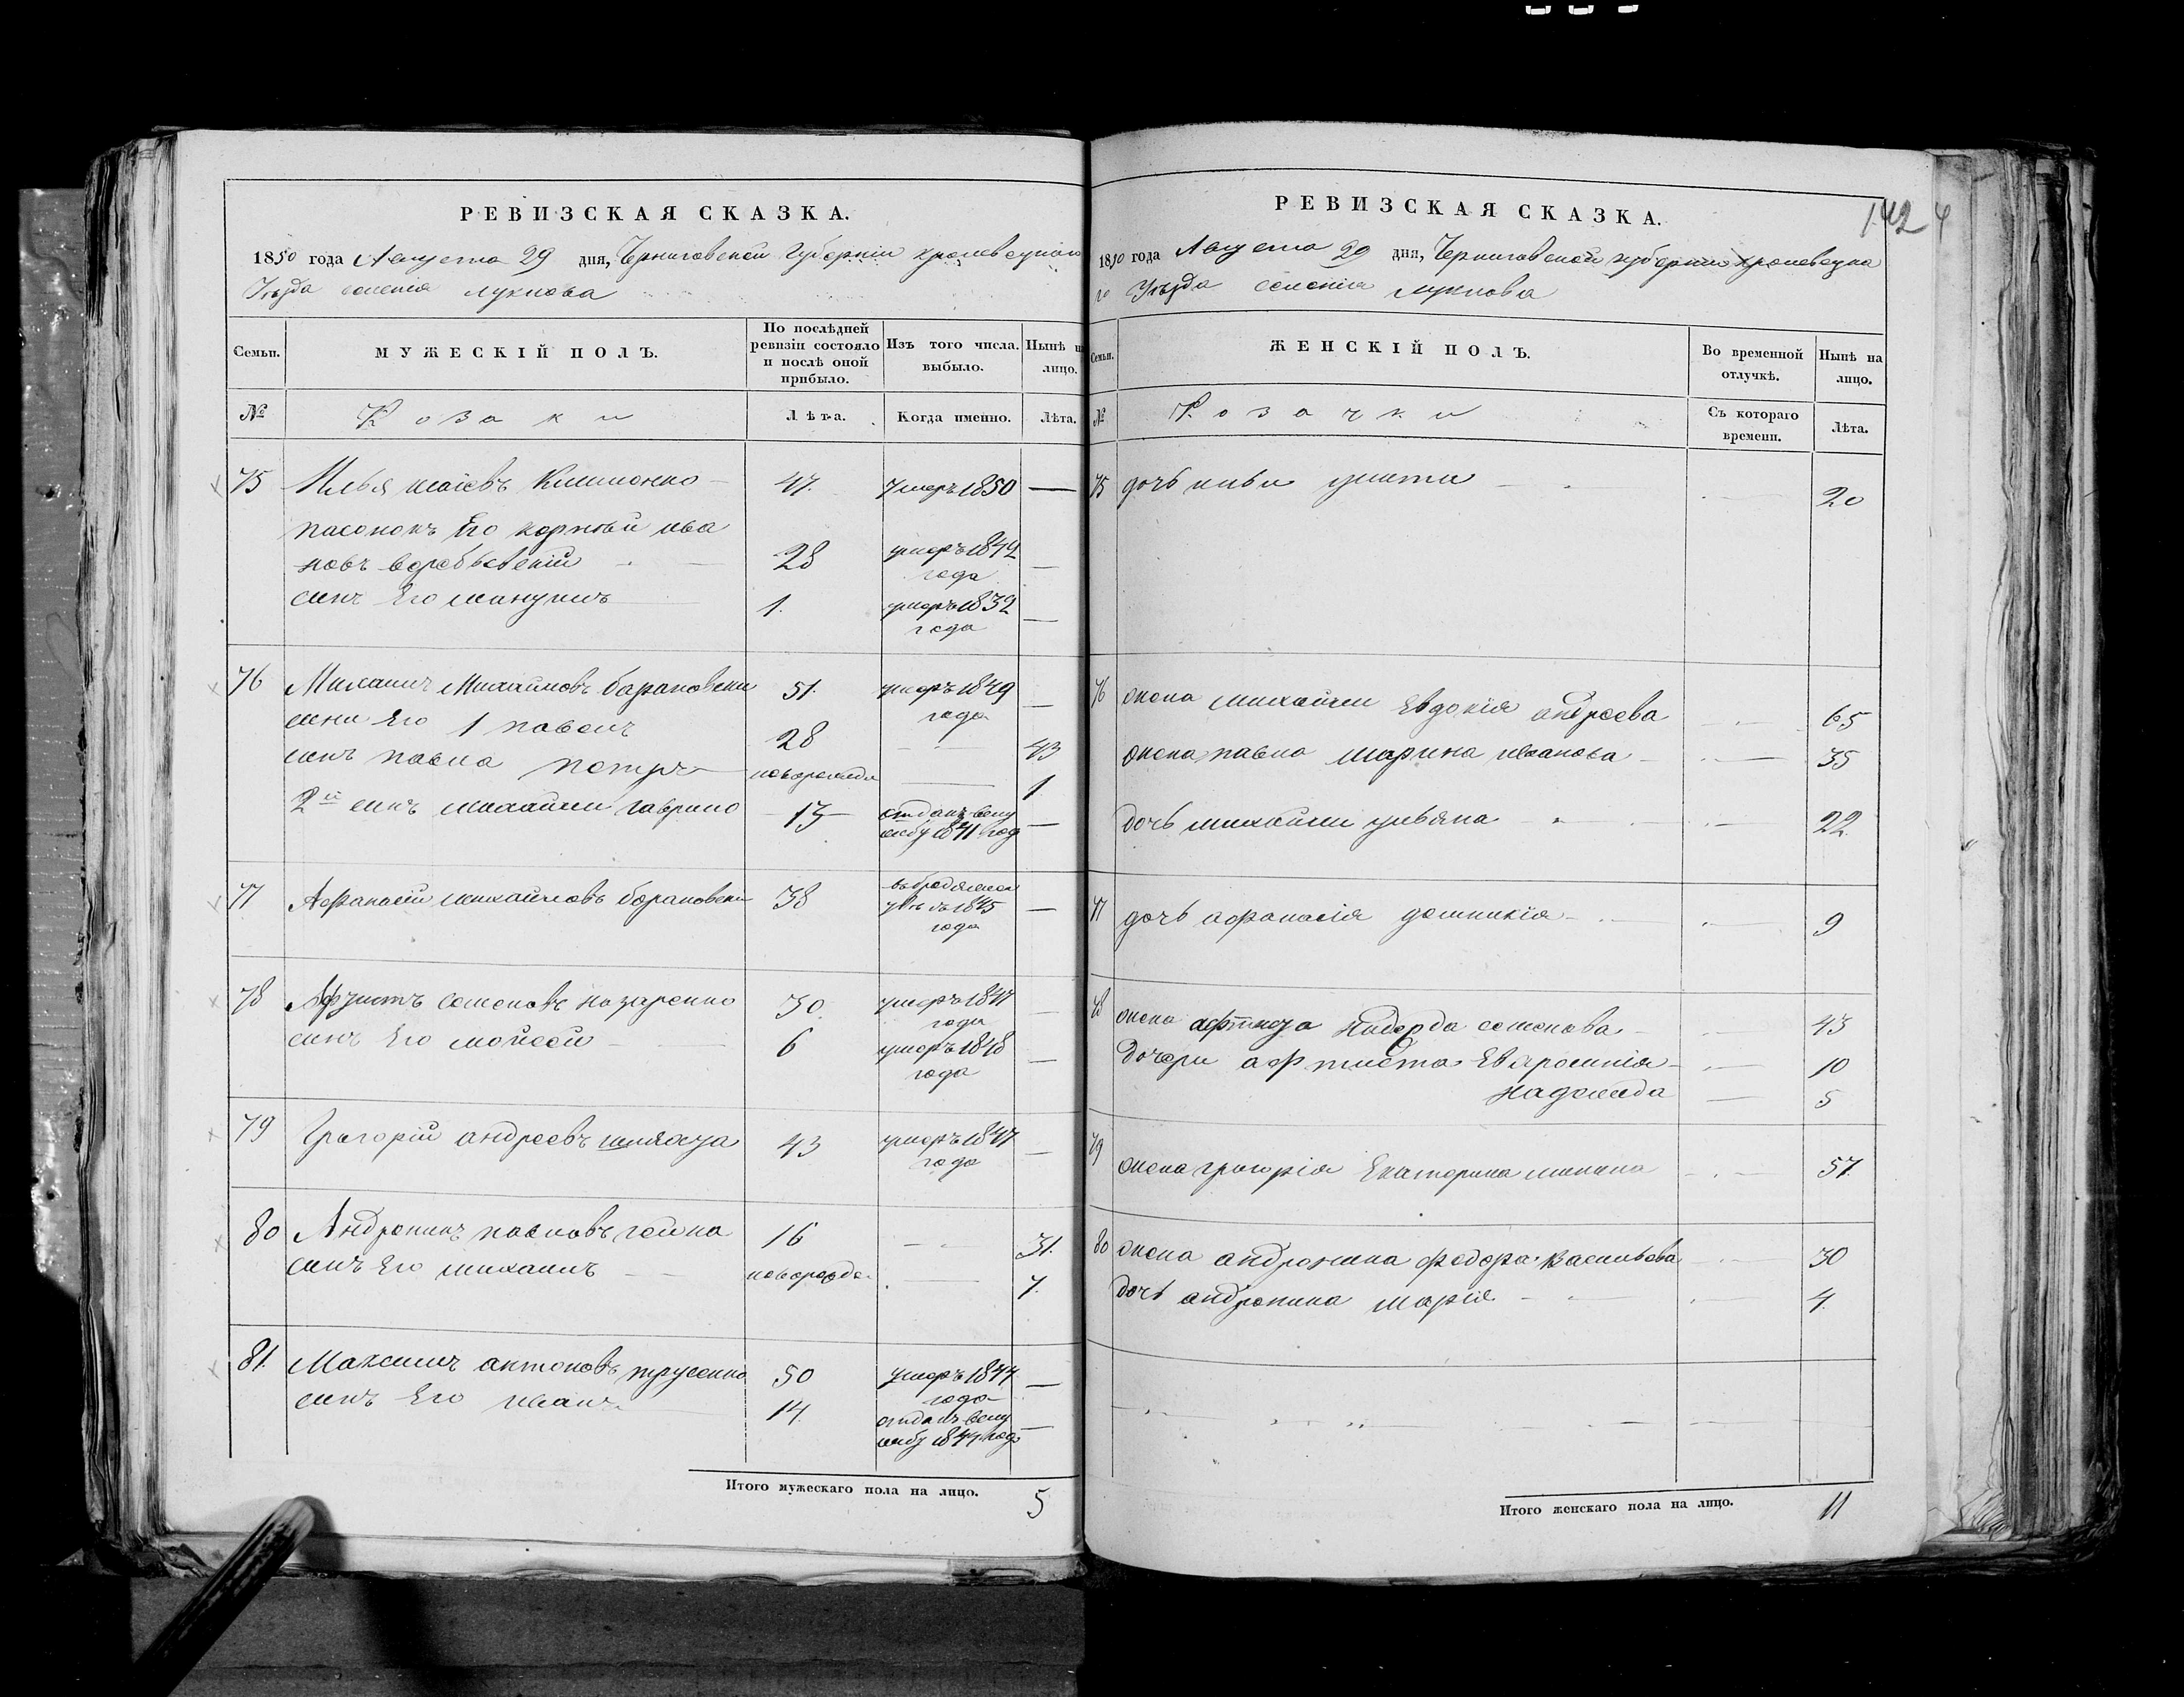 РЕВИЗСКАЯ СКАЗКА.
1850 года Августа 29 дня, Черниговской Губерніи кролевецкого
Уезда селенія
Семьи.
МУЖЕСКІЙ ПОЛЪ.
По послѣдней
ревизіи состояло
и послѣ оной
прибыло.
Изъ того числа
выбыло.
Нынѣ на
лицо.
№
Козаки
Лѣта.
Когда именно.
Лѣта.
75 Илья 47. Умеръ 1850 —
пасонокъ Его корній ива
новъ 28 умеръ 1842
года —
синъ Его 1. умеръ 1832
года —
76 Михаилъ Михайловъ барановски 51. умеръ 1849
года —
сини Его 1 павелъ 28 — 43
синъ павла петръ новорожде — 1
2й синъ михайли гаврило 17 отданъ вслу
жбу 1841 год —
77 Афанасій михайловъ барановскі 38 1845
года —
78 семеновъ назаренко 30. умеръ 1847
года —
синъ Его мойсей 6 умеръ 1848
года —
79 Григорій андреевъ 43 умеръ 1847
года —
80 Андроникъ павловъ 16 — 31.
синъ Его михаилъ новорожде — 7.
81. Максимъ антоновъ 50 умеръ 1844
года —
синъ Его иванъ 14. отданъ вслу
жбу 1844 год —
Итого мужескаго пола на лицо. 5
142 4
РЕВИЗСКАЯ СКАЗКА.
1850 года Августа 29 дня, Черниговской губерніи кролевецка
го Уезда селенія
Семьи.
ЖЕНСКІЙ ПОЛЪ.
Во временной
отлучкѣ.
Нынѣ на
лицо.
№
Козачки
Съ котораго
времени.
Лѣта.
75 дочь ильи — 20
76 жена михайли Евдокія андреева — 65
жена павла марина иванова — 35
дочь михайли ульяна — 22.
77 дочь афанасія домникія — 9
78 жена семенова — 43
дочери — 10
надежда — 5
79 жена григорія Екатерина — 57.
80 жена андроника федора васильева — 30
дочь андроника марія — 4.
Итого женскаго пола на лицо. 11